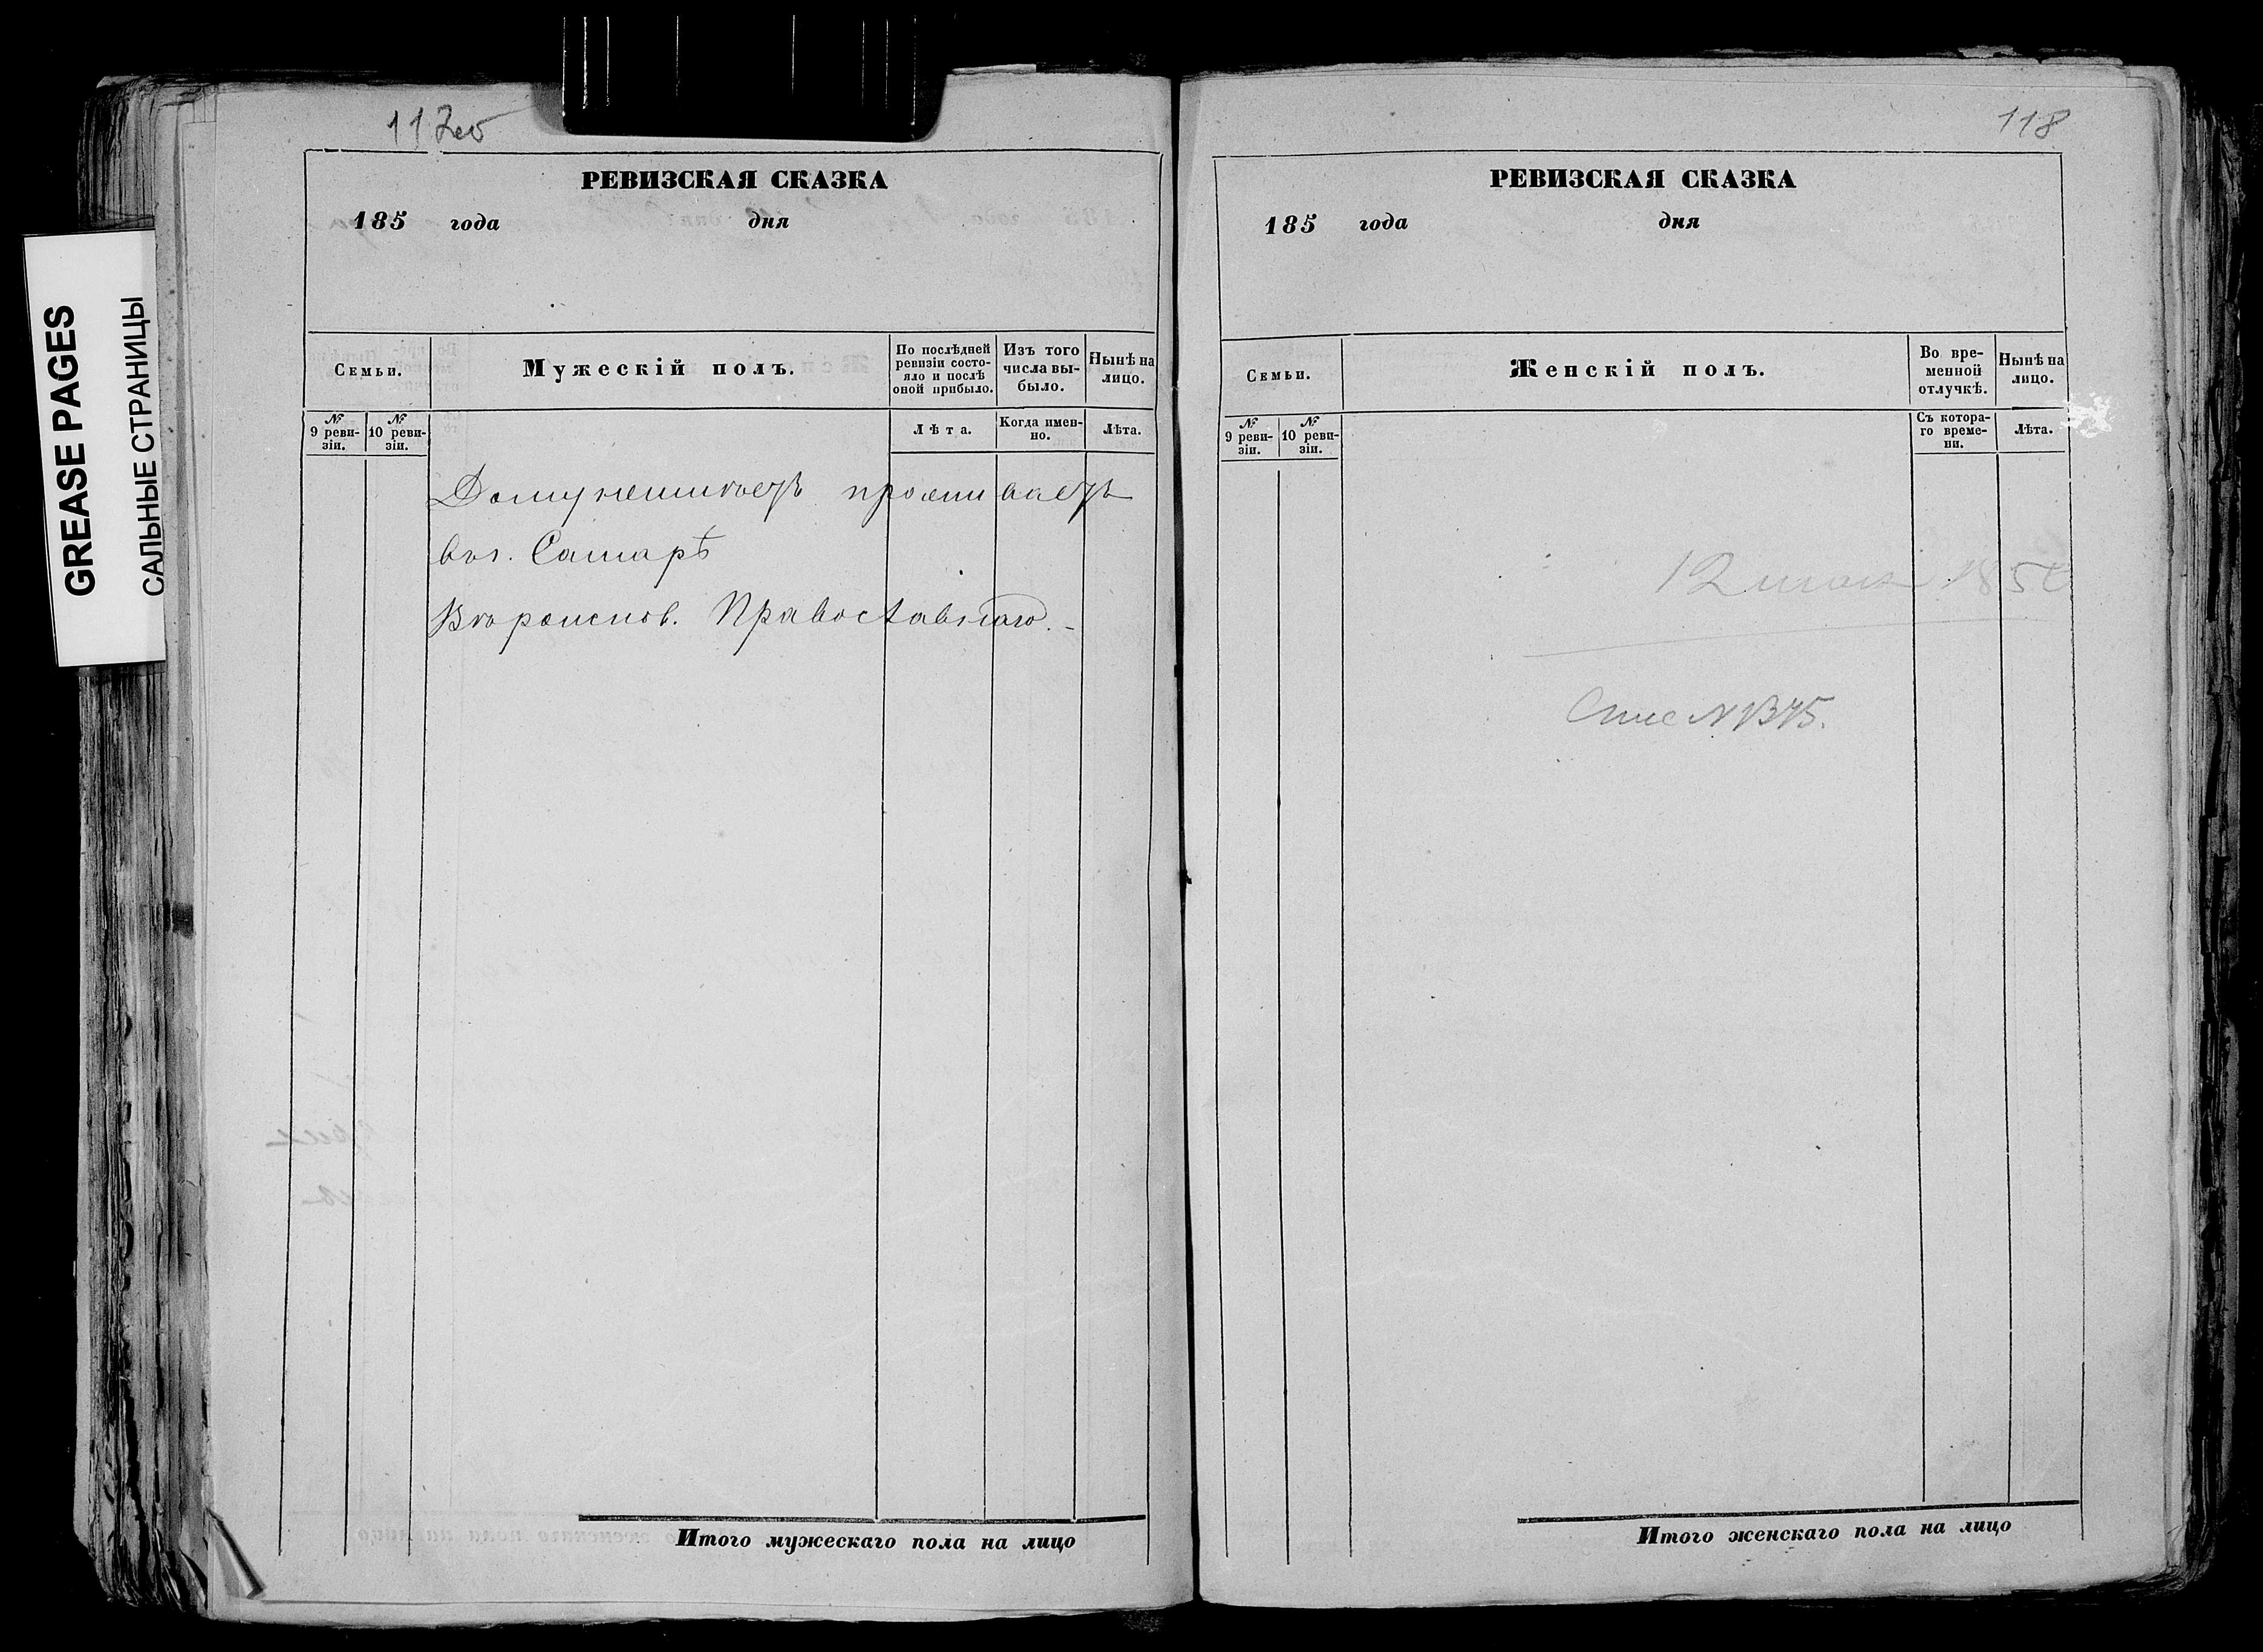 GREASE PAGES
САЛЬНЫЕ СТРАНИЦЫ
117об
РЕВИЗСКАЯ СКАЗКА
185 года дня
Семьи.
Мужескій полъ.
По послѣдней ревизіи состо-
яло и послѣ оной прибыло.
Изъ того числа вы-
было.
Нынѣ на лицо.
№ 9 реви-
зіи.
№ 10 реви-
зіи.
Лѣта.
Когда имен-
но.
Лѣта.
проживаетъ
въ г. Самарѣ
Вѣроиспов. Православнаго.
Итого мужескаго пола на лицо
118
РЕВИЗСКАЯ СКАЗКА
185 года дня
Семьи.
Женскій полъ.
Во вре-
менной
отлучкѣ.
Нынѣ на
лицо.
№ 9 реви-
зіи.
№ 10 реви-
зіи.
Съ котора-
го време-
ни.
Лѣта.
12 185
Итого женскаго пола на лицо